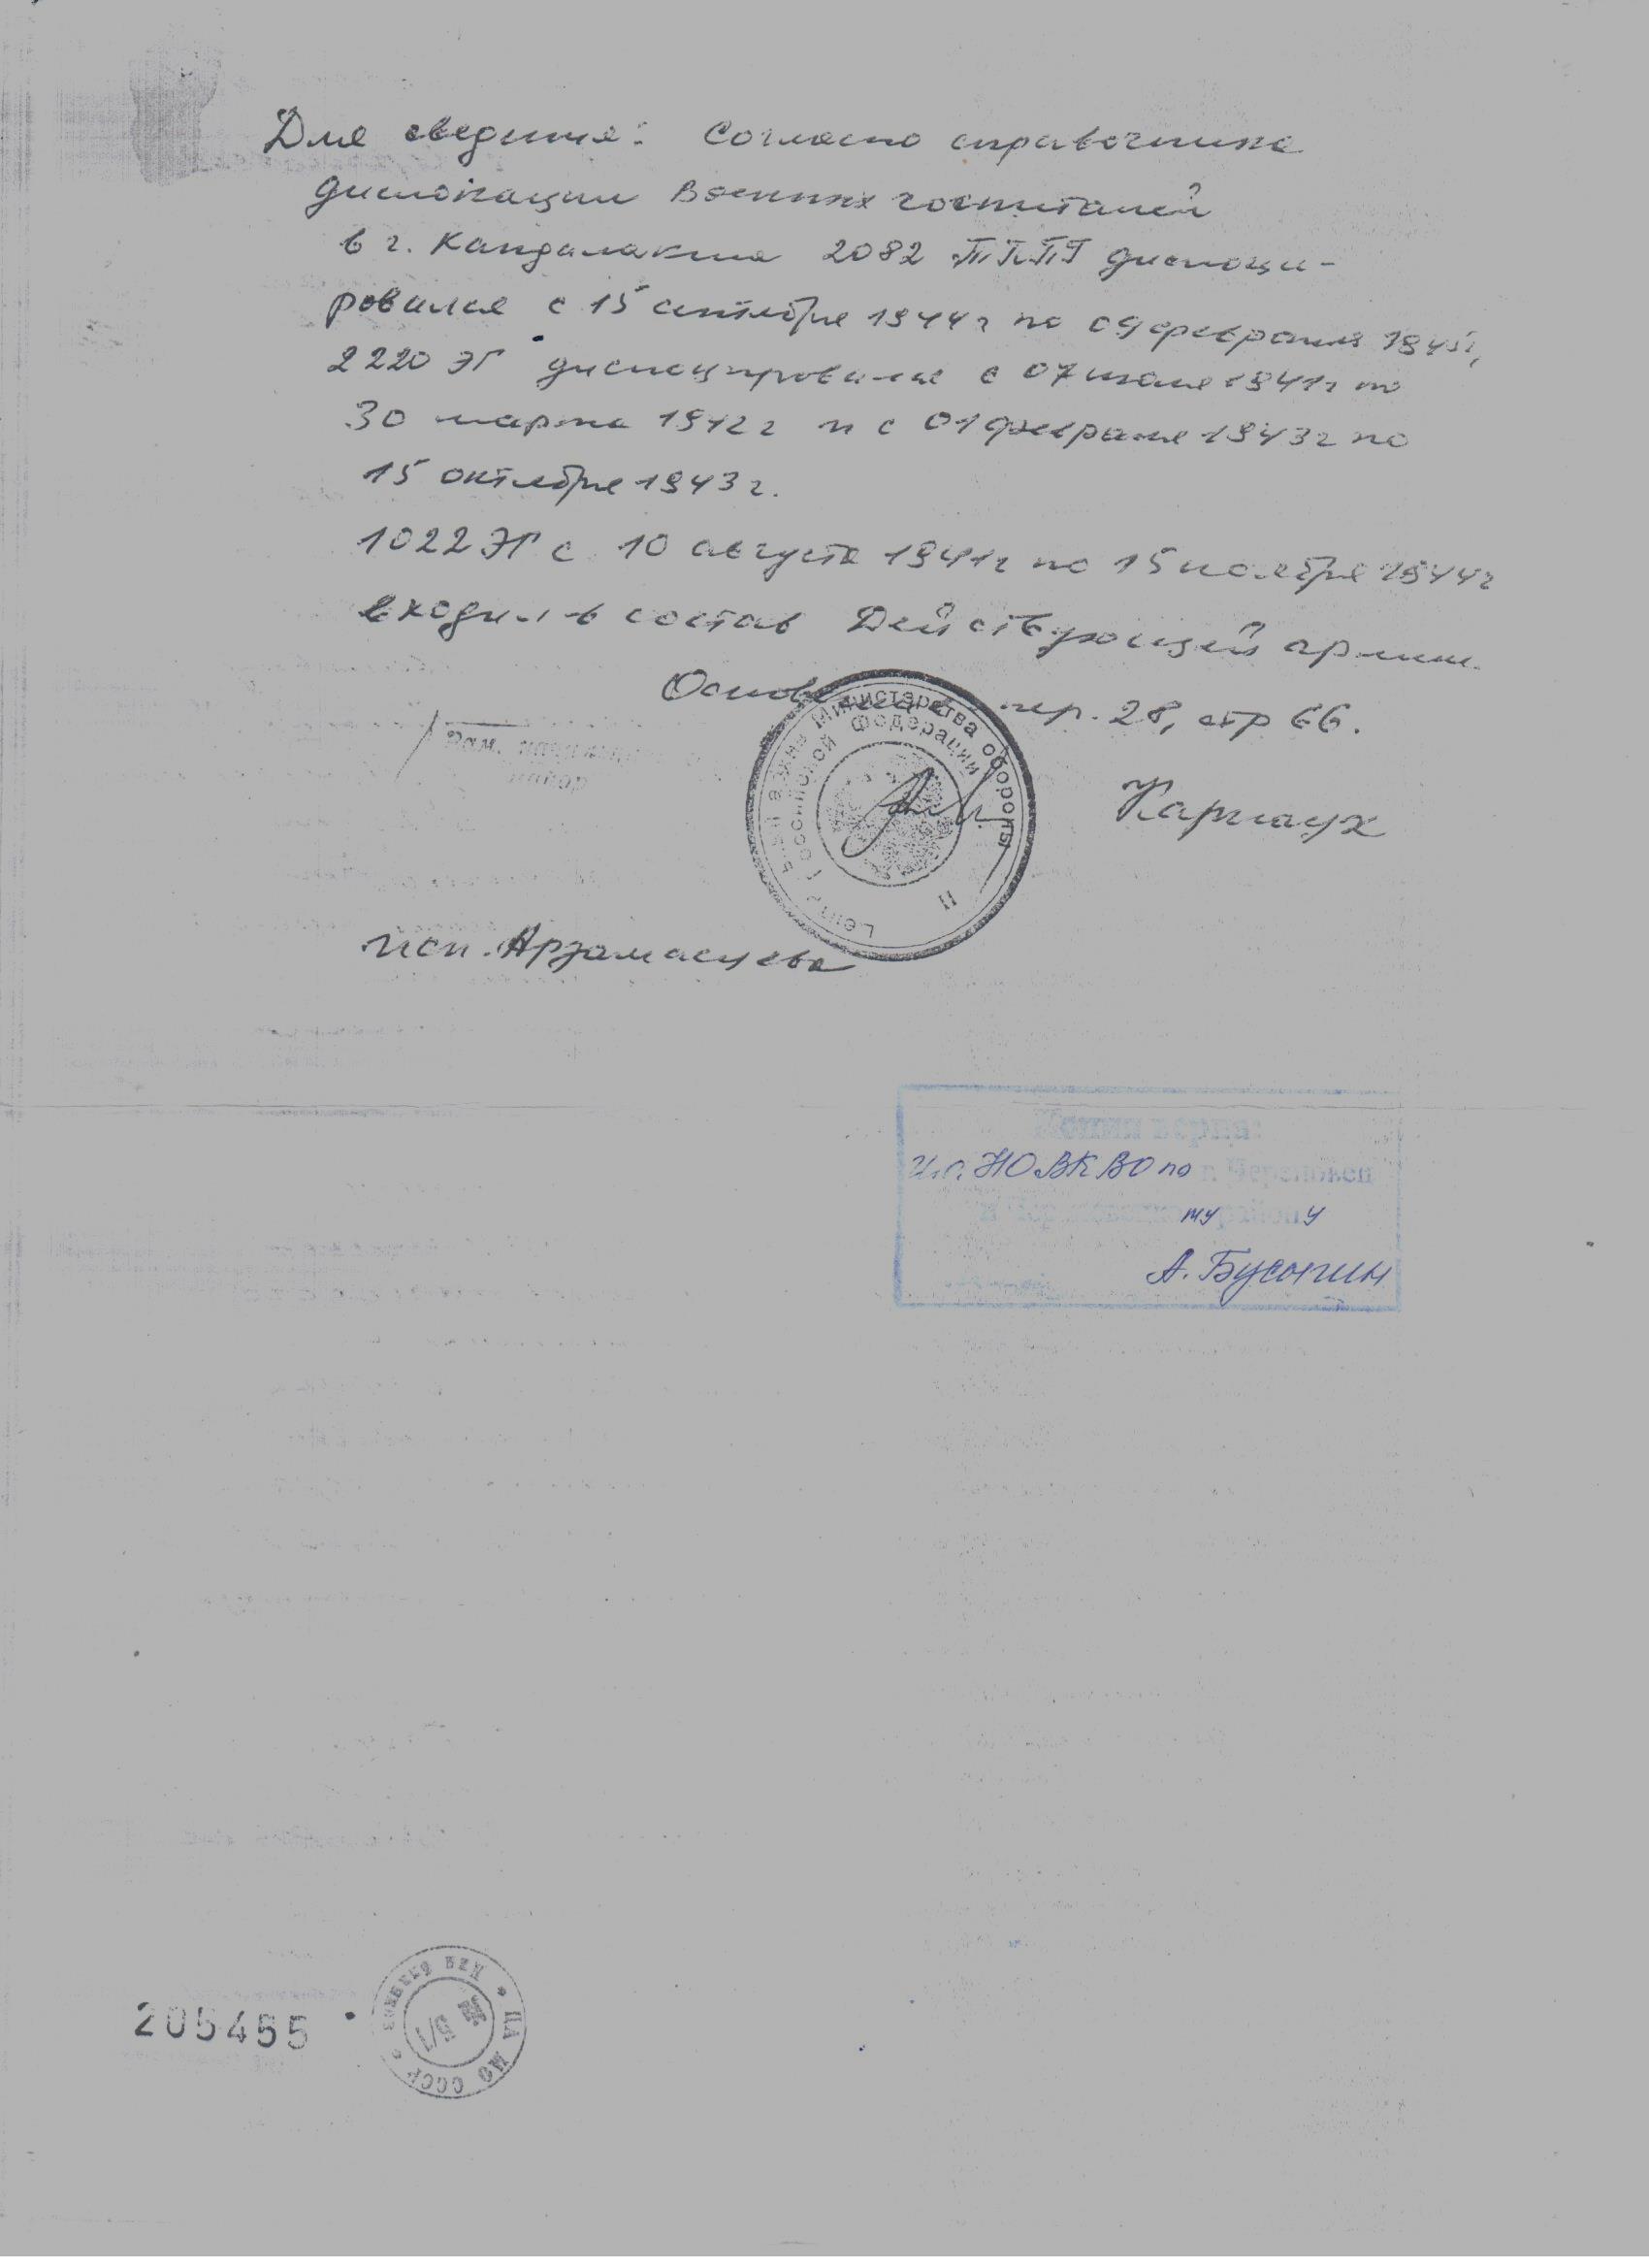 Для сведения: Согласно справочника
дислокации военных госпиталей
в г. Кандалакша 2082 ТППГ дислоци-
ровался с 15 сентября 1944 г по 09 февраля 1945г,
2220 ЭГ дислоцировался с 07 1941г по
30 марта 1942 г и с 01 февраля 1943 г по
15 октября 1943 г.
1022 ЭГ с 10 августа 1941г по 15 ноября 1944г
входил в состав Действующей армии.
пер. 28, стр 66.
Министерства обороны
Российской Федерации
Зам.
Карнаух
исп. Арзамасцева
Копия верна:
И.о. НОВКВО по г. Череповец
и му району
205455
ЦА МО СССР